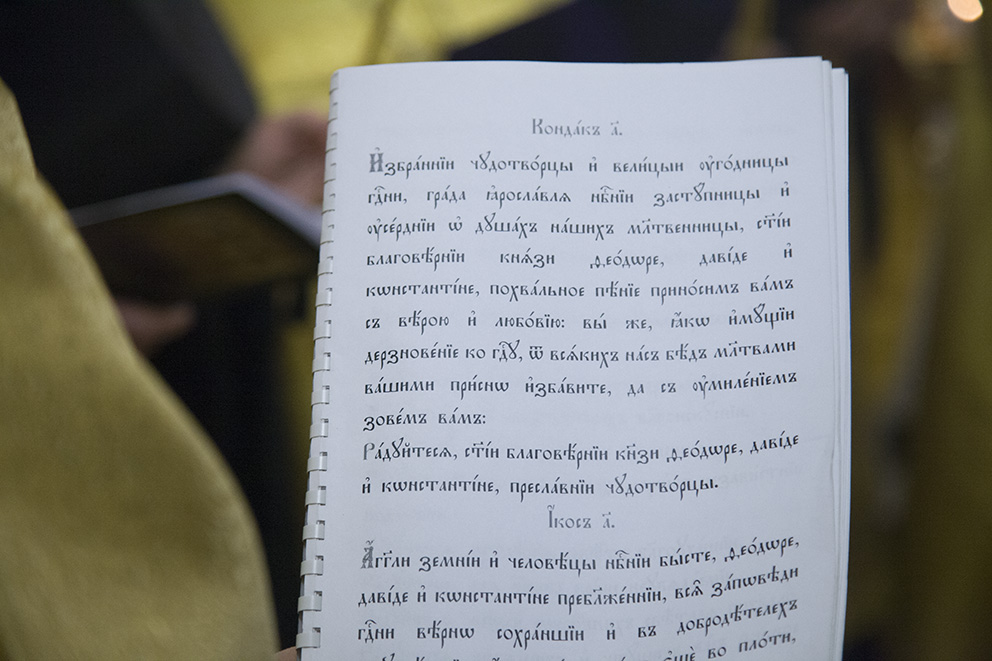 Конда́къ а҃.
И҆збра́ннїи чꙋдотво́рцы и҆ вели́цыи ᲂу҆го́дницы
гдⷭ҇ни, гра́да ꙗ҆росла́влѧ нбⷭ҇нїи застꙋ́пницы и҆
ᲂу҆се́рднїи ѡ҆ дꙋша́хъ на́шихъ мл҃твенницы, ст҃і́и
благовѣ́рнїи кнѧ́зи ѳео́дѡре, даві́де и҆
кѡнстанті́не, похва́льное пѣ́нїе прино́симъ ва́мъ
съ вѣ́рою и҆ любо́вїю: вы́ же, ꙗ҆́кѡ и҆мꙋ́щїи
дерзнове́нїе ко гдⷭ҇ꙋ, ѿ всѧ́кихъ на́съ бѣ́дъ мл҃твами
ва́шими при́снѡ и҆зба́вите, да съ ᲂу҆миле́нїемъ
зове́мъ ва́мъ:
Ра́дꙋйтесѧ, ст҃і́и благовѣ́рнїи кнѧ҃зи ѳео́дѡре, даві́де
и҆ кѡнстанті́не, пресла́внїи чꙋдотво́рцы.
І҆́косъ а҃.
А҆́гг҃ли земні́и и҆ человѣ́цы нбⷭ҇нїи бы́сте, ѳео́дѡре,
даві́де и҆ кѡнстанті́не пребл҃же́ннїи, всѧ̑ за́пѡвѣди
гдⷭ҇ни вѣ́рнѡ сохра́ншїи и҆ въ добродѣ́телехъ
во пло́ти,